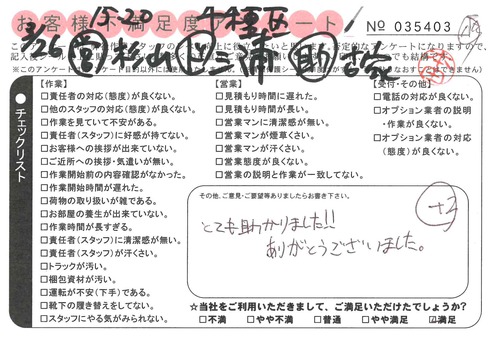 お客様不満足度アンケート
№ 035403
15:20
千種区
3/26
松山
助
チェックリスト
【作業】
□責任者の対応(態度)が良くない。
□他のスタッフの対応(態度)が良くない。
□作業を見ていて不安がある。
□責任者(スタッフ)に好感が持てない。
□お客様への挨拶が出来ていない。
□ご近所への挨拶・気遣いが無い。
□作業開始前の内容確認がなかった。
□作業開始時間が遅れた。
□荷物の取り扱いが雑である。
□お部屋の養生が出来ていない。
□作業時間が長すぎる。
□責任者(スタッフ)に清潔感が無い。
□責任者(スタッフ)が汗臭い。
□トラックが汚い。
□梱包資材が汚い。
□運転が不安(下手)である。
□靴下の履き替えをしてない。
□スタッフにやる気がみられない。
【営業】
□見積もり時間に遅れた。
□見積もり時間が長い。
□営業マンに清潔感が無い。
□営業マンが煙草くさい。
□営業マンが汗臭い。
□営業態度が良くない。
□営業の説明が良くない。
□営業マンにやる気が感じられない。
【受付・その他】
□電話の対応が良くない。
□オプション業者の説明
・作業が良くない。
□オプション業者の対応
(態度)が良くない。
その他、ご意見・ご要望等ありましたらお書き下さい。
とても助かりました!!
ありがとうございました。
+2
☆当社をご利用いただきまして、ご満足いただけたでしょうか?
□不満 □やや不満 □普通 □やや満足 ☑満足